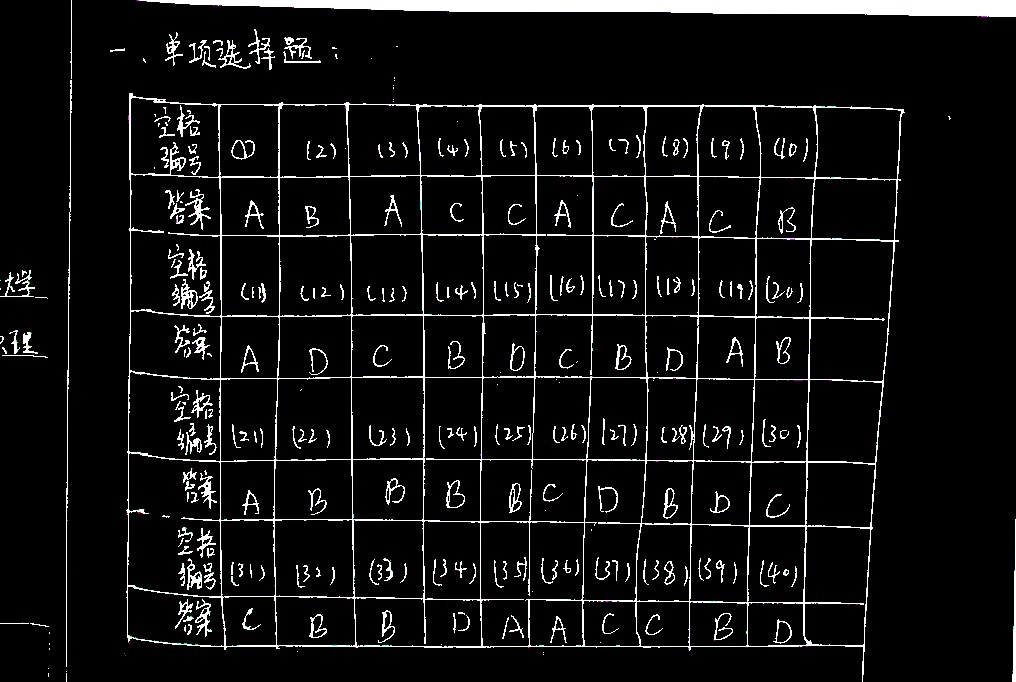 一、单项选择题：
空格编号 (1) (2) (3) (4) (5) (6) (7) (8) (9) (10)
答案 A B A C C A C A C B
空格编号 (11) (12) (13) (14) (15) (16) (17) (18) (19) (20)
答案 A D C B D C B D A B
空格编号 (21) (22) (23) (24) (25) (26) (27) (28) (29) (30)
答案 A B B B B C D B D C
空格编号 (31) (32) (33) (34) (35) (36) (37) (38) (39) (40)
答案 C B B D A A C C B D
大学
理